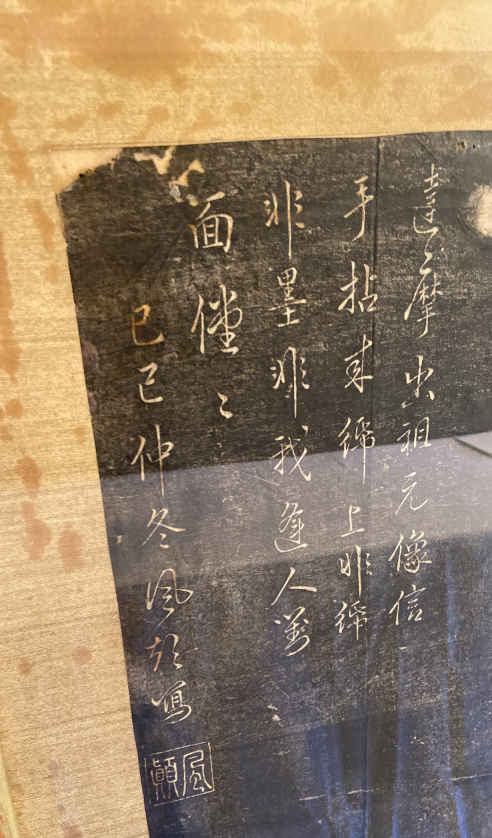 達摩出祖元像信
手拈來上非
非墨非我逢人對
面
己巳仲冬風顛寫
風顛